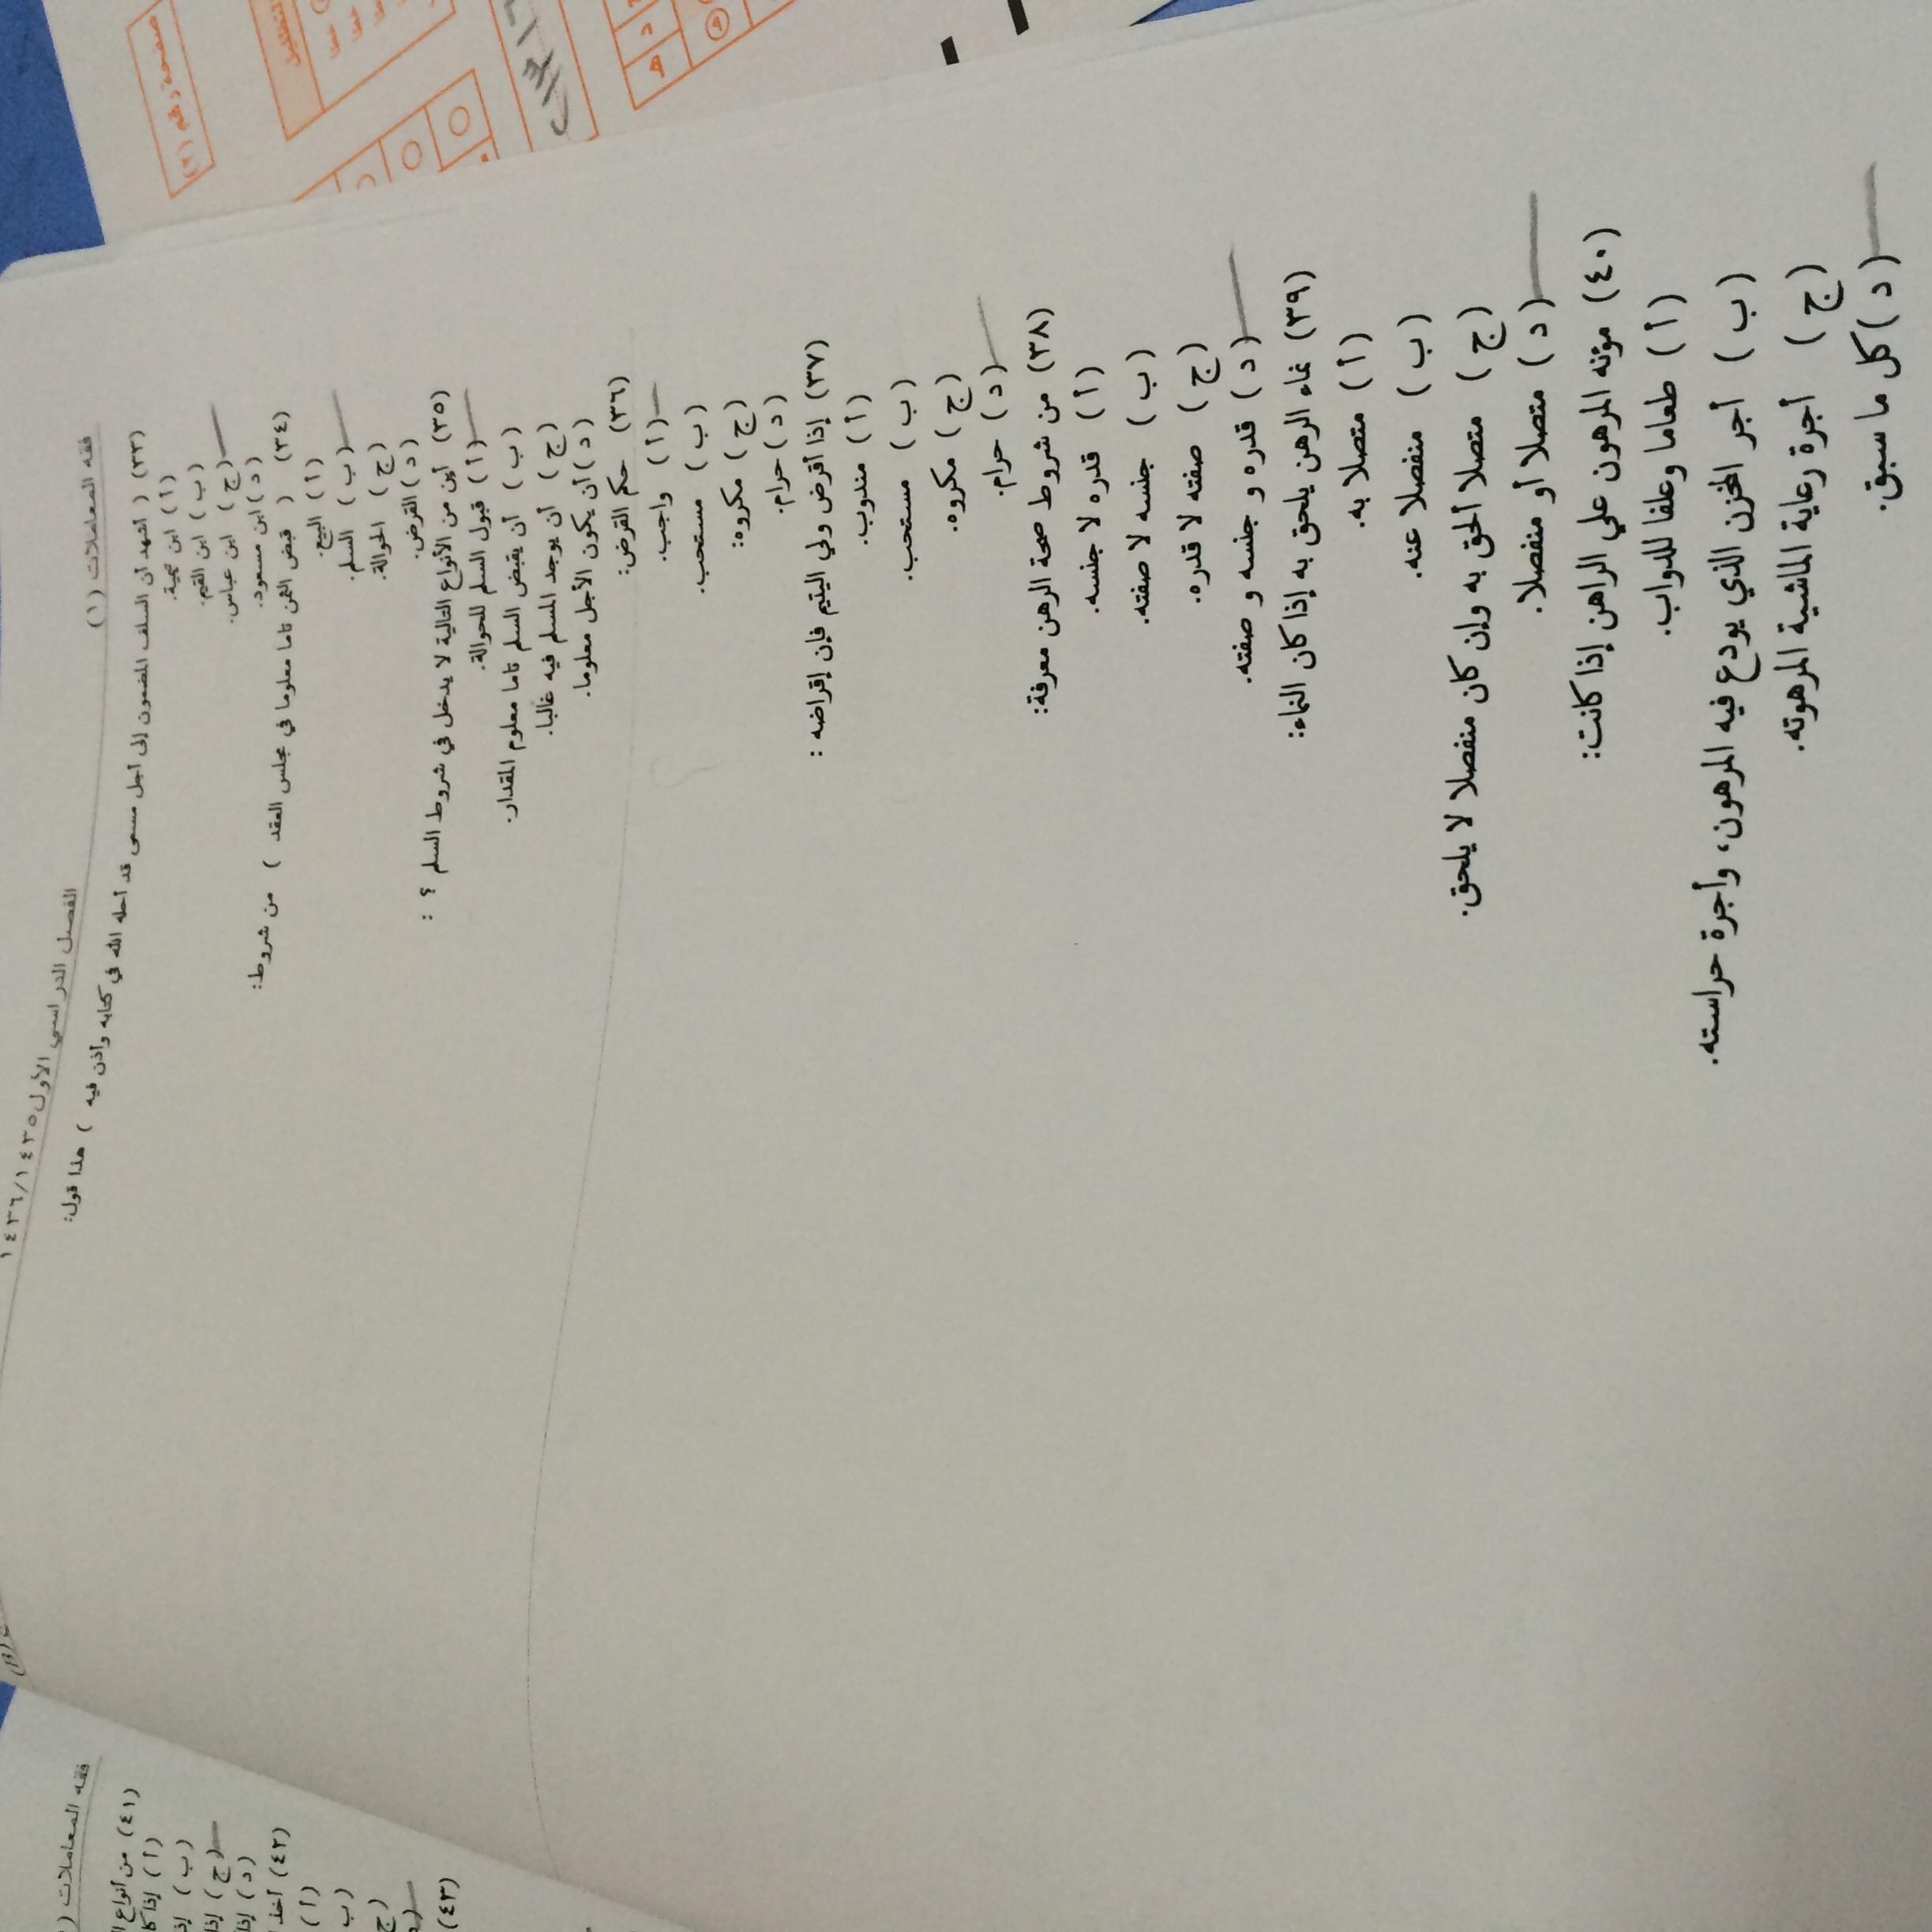 فقه المعاملات (١)
الفصل الدراسي الأول ١٤٣٥/١٤٣٦
(٣٣) ( أشهد أن السلف المضمون إلى أجل مسمى قد أحله الله في كتابه وأذن فيه ) هذا قول:
(أ) ابن تيمية.
(ب) ابن القيم.
(ج) ابن عباس.
(د) ابن مسعود.
(٣٤) ( قبض الثمن تاما معلوما في مجلس العقد ) من شروط:
(أ) البيع.
(ب) السلم.
(ج) الحوالة.
(د) القرض.
(٣٥) أين من الأنواع التالية لا يدخل في شروط السلم ؟ :
(أ) قبول السلم للحوالة.
(ب) أن يقبض السلم تاما معلوم المقدار.
(ج) أن يوجد المسلم فيه غالبا.
(د) أن يكون الأجل معلوما.
(٣٦) حكم القرض:
(أ) واجب.
(ب) مستحب.
(ج) مكروه:
(د) حرام.
(٣٧) إذا أقرض ولي اليتيم فإن إقراضه :
(أ) مندوب.
(ب) مستحب.
(ج) مكروه.
(د) حرام.
(٣٨) من شروط صحة الرهن معرفة:
(أ) قدره لا جنسه.
(ب) جنسه لا صفته.
(ج) صفته لا قدره.
(د) قدره و جنسه و صفته.
(٣٩) نماء الرهن يلحق به إذا كان النماء:
(أ) متصلا به.
(ب) منفصلا عنه.
(ج) متصلا ألحق به وإن كان منفصلا لا يلحق.
(د) متصلا أو منفصلا.
(٤٠) مؤنه المرهون علي الراهن إذا كانت:
(أ) طعاما وعلفا للدواب.
(ب) أجر المخزن الذي يودع فيه المرهون، وأجرة حراسته.
(ج) أجرة رعاية الماشية المرهونه.
(د) كل ما سبق.
صفحة رقم (٢)
فقه المعاملات (
(٤١) من أنواع
(أ) إذا كا
(ب) إذ
(ج) إذا
(د) إذا
(٤٢) أخذ
(أ)
ب)
ج)
(٤٣)